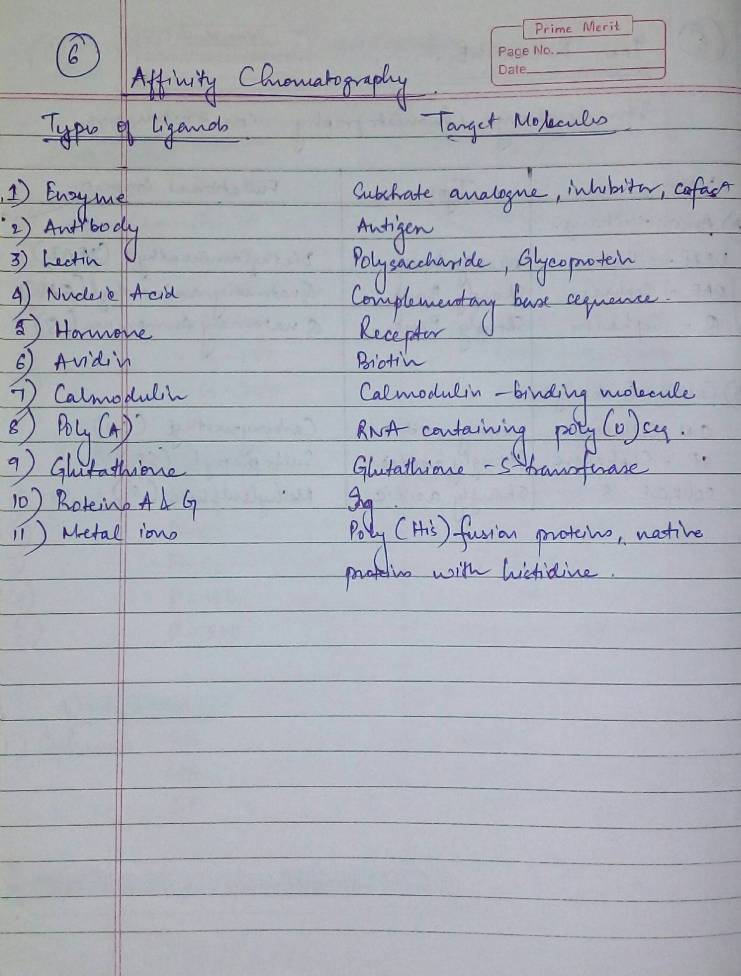 6
Prime Merit
Page No.
Date
Affinity Chromatography
Types of Ligands Target Molecules
1) Enzyme Substrate analogue, inhibitor, cofact
2) Antibody Antigen
3) Lectin Polysaccharide, Glycoprotein
4) Nucleic Acid Complementary base sequence.
5) Hormone Receptor
6) Avidin Biotin
7) Calmodulin Calmodulin - binding molecule
8) Poly (A) RNA containing poly (U) seq.
9) Glutathione Glutathione - S - transferase
10) Proteins A & G Ig.
11) Metal ions Poly (His) fusion proteins, native
proteins with histidine.